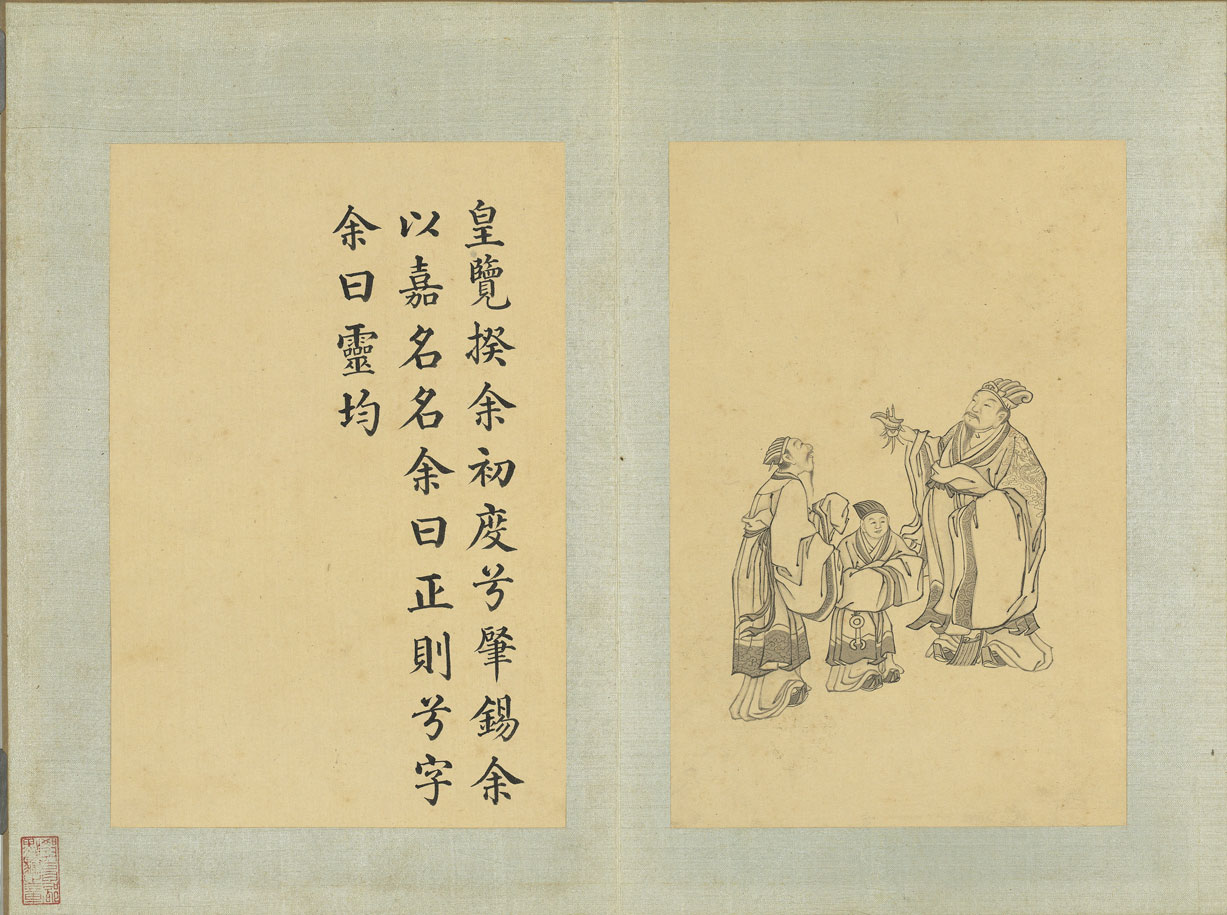 皇覽揆余初度兮肈錫余
以嘉名名余曰正則兮字
余曰靈均